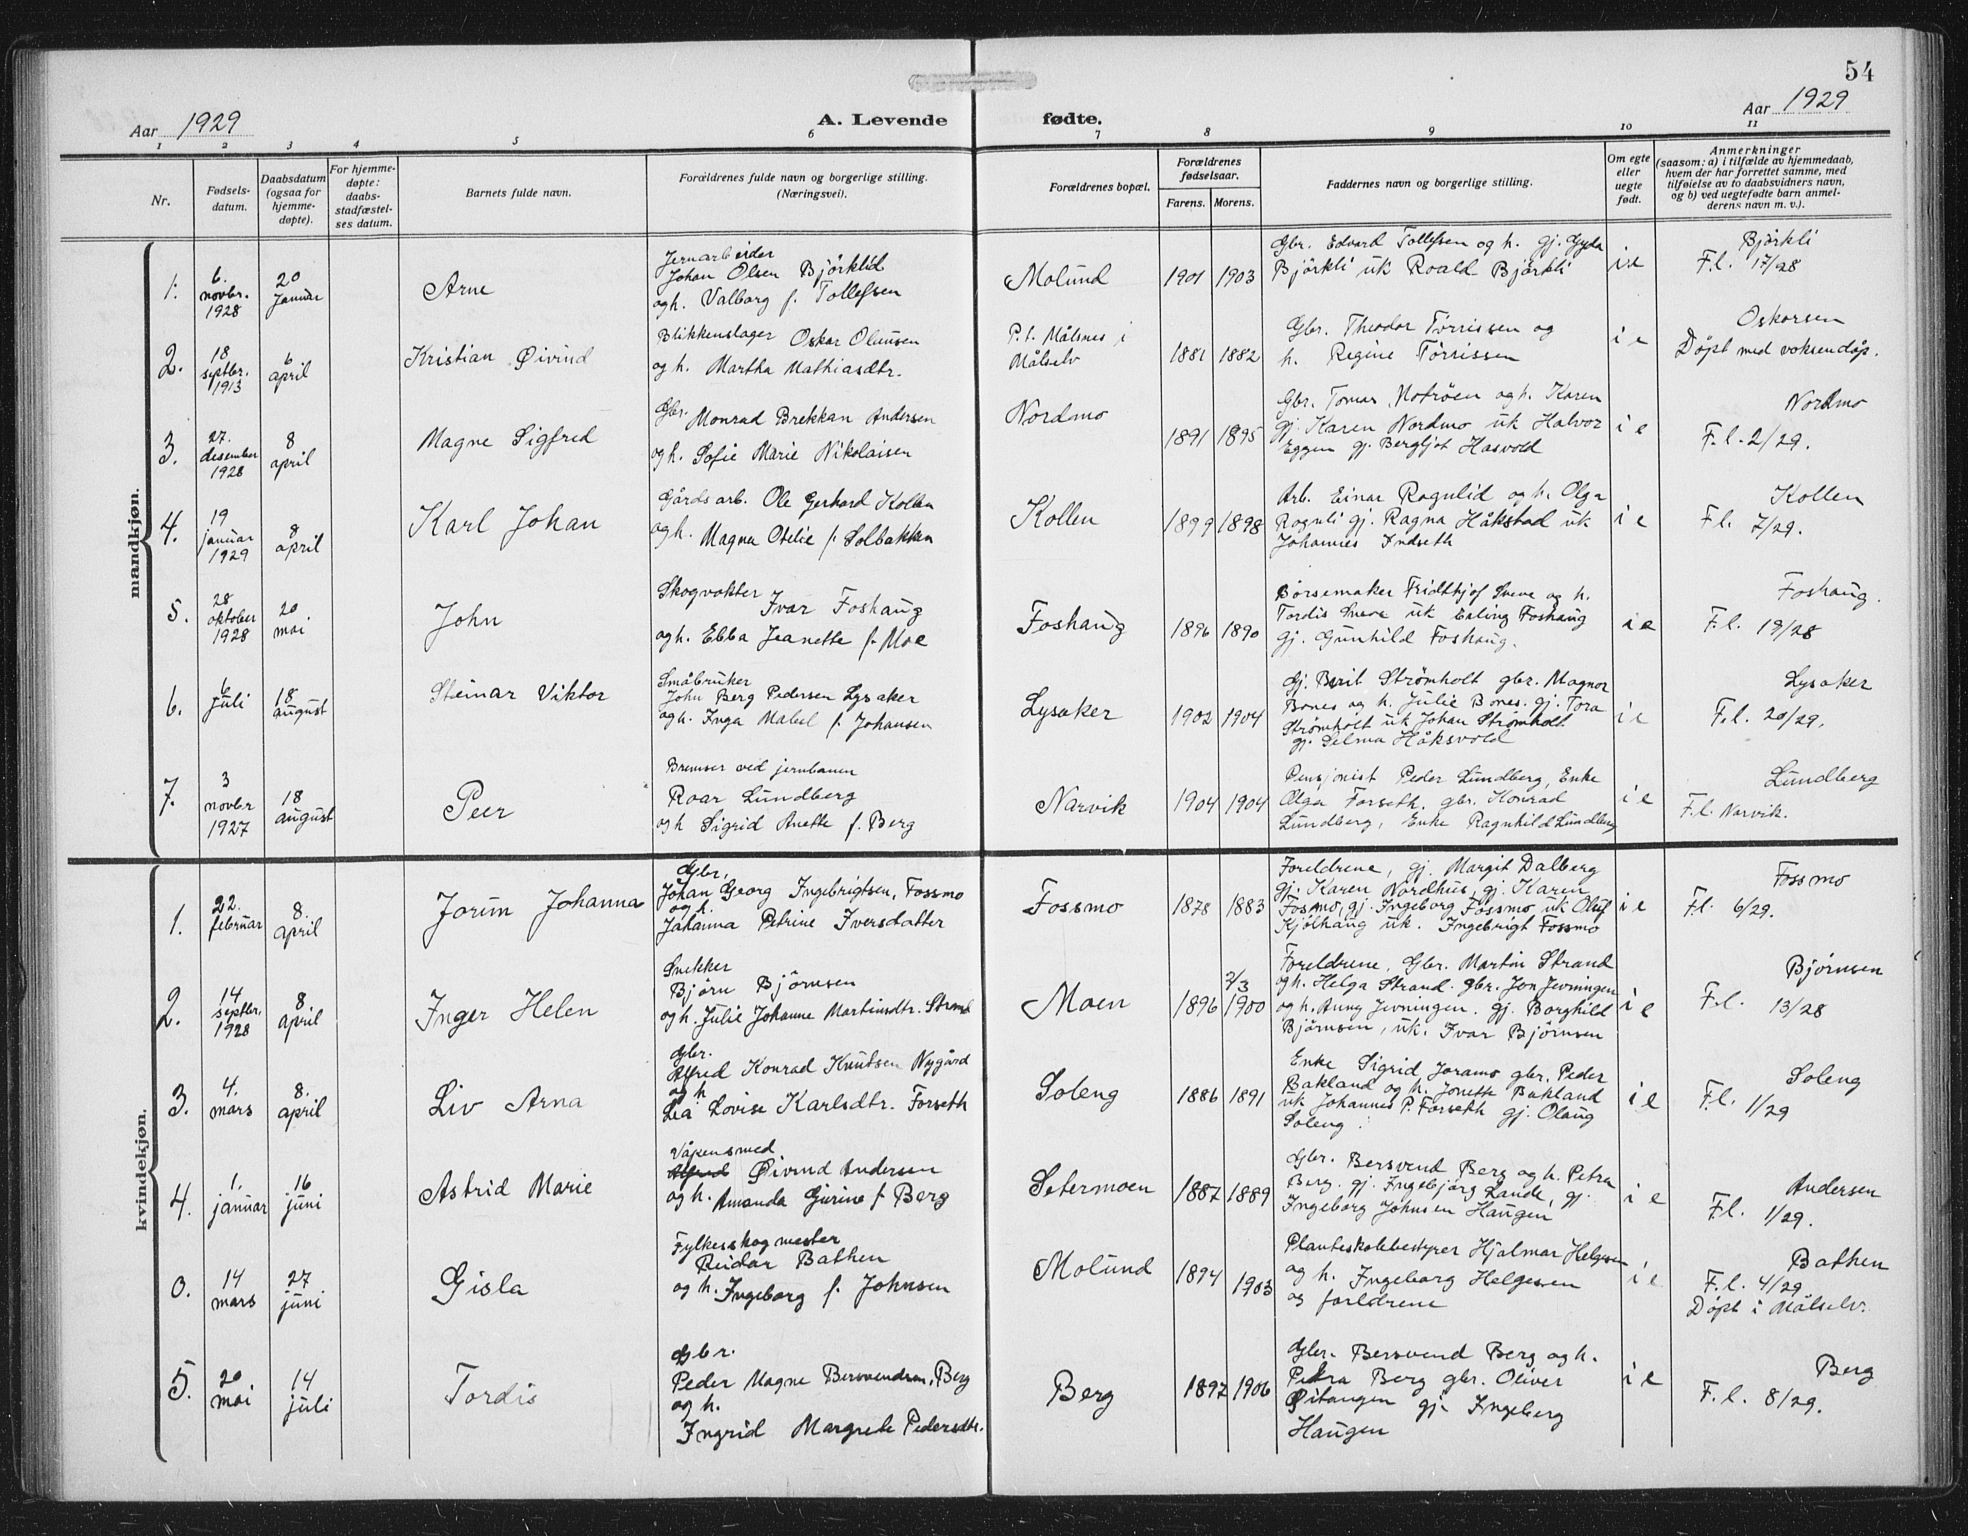 54
Aar 1929
A. Levende fødte.
Aar 1929
1 2 3 4 5 6 7 8 9 10 11
Nr.
Fødsels-
datum.
Daabsdatum
(ogsaa for
hjemme-
døpte).
For hjemme-
døpte:
daabs-
stadfæstel-
ses datum.
Barnets fulde navn.
Forældrenes fulde navn og borgerlige stilling.
(Næringsvei).
Forældrenes bopæl.
Forældrenes
fødselsaar.
Farens. Morens.
Faddernes navn og borgerlige stilling.
Om egte
eller
uegte
født.
Anmerkninger
(saasom: a) i tilfælde av hjemmedaab,
hvem der har forrettet samme, med
tilføielse av to daabsvidners navn,
og b) ved uegtefødte barn anmel-
derens navn m. v.).
mandkjøn.
1.
6.
novbr.
1928
20
januar
Arne
Jernarbeider
Johan Olsen Bjørklid
og h. Valborg f. Tollefsen
Molund
1901 1903
Gbr. Edvard Tollefsen og h. gj. Gyda
Bjørkli uk Roald Bjørkli
i e
Bjørkli
F.l. 17/28
2.
18
septbr.
1913
6
april
Kristian Øivind
Blikkenslager Oskar Olausen
og h. Martha Mathiasdtr.
P.t. Målsnes i
Målselv
1881 1882
Gbr. Theodor Tørrissen og
h. Regine Tørrissen
i e
Oskarsen
Døpt med voksendåp.
3.
27.
desember
1928
8
april
Magne Sigfred
Gbr. Monrad Brekkan Andersen
og h. Sofie Marie Nikolaisen
Nordmo
1891 1895
Gbr. Tomas Motrøen og h. Karen
gj. Karen Nordmo uk Halvor
Eggen gj. Bergljot Hasvold
i e
Nordmo
F.l. 2/29.
4.
19
januar
1929
8
april
Karl Johan
Gårdsarb. Ole Gerhard Kollen
og h. Magna Otelie f. Solbakken
Kollen
1899 1898
Arb. Einar Rognlid og h. Olga
Rognli gj. Ragna Håkstad uk
Johannes Indseth
i e
Kollen
F.l. 7/29.
5.
28
oktober
1928
20
mai
John
Skogvokter Ivar Foshaug
og h. Ebba Jeanette f. Moe
Foshaug
1896 1890
Børsemaker Fridthjof Sveve og h.
Tordis Sveve uk Erling Foshaug
gj. Gunhild Foshaug.
i e
Foshaug.
F.l. 19/28
6.
6
juli
18
august
Steinar Viktor
Småbruker
John Berg Pedersen Lysaker
og h. Inga Mabel f. Johansen
Lysaker
1902 1904
Gj. Berit Strømholt gbr. Magnor
Bones og h. Julie Bones. gj. Tora
Strømholt uk Johan Strømholt
gj. Selma Håksvold
i e
Lysaker
F.l. 20/29.
7.
3
novbr
1927
18
august
Peer
Bremser ved jernbanen
Roar Lundberg
og h Sigrid Anette f. Berg
Narvik
1904 1904
Pensjonist Peder Lundberg, Enke
Olga Forseth. gbr. Konrad
Lundberg, Enke Ragnhild Lundberg
i e
Lundberg
F.l. Narvik.
kvindekjøn.
1.
22.
februar
8.
april
Jorun Johanna
Gbr,
Johan Georg Ingebrigtsen, Fossmo
og h.
Johanna Petrine Iversdatter
Fossmo
1878 1883
Foreldrene, gj. Margit Dalberg
gj. Karen Nordhus, gj. Karen
Fosmo, gj. Ingeborg Fossmo uk Oluf
Kjølhaug uk. Ingebrigt Fossmo
i e
Fossmo
F.l. 6/29.
2.
14
septbr.
1928
8.
april
Inger Helen
Snekker
Bjørn Bjørnsen
og h. Julie Johanne Martinsdtr. Strand
Moen
1896 2/3 1900
Foreldrene, Gbr. Martin Strand
og h. Helga Strand. gbr. Jon Jevningen
og h. Anny Jevningen. gj. Borghild
Bjørnsen, uk. Ivar Bjørnsen
i e
Bjørnsen
F.l. 13/28
3.
4.
mars
8.
april
Liv Arna
Gbr.
Alfred Konrad Knutsen Nygård
og h
Lea Lovise Karlsdtr. Forseth
Soleng
1886 1891
Enke Sigrid Joramo gbr. Peder
Bakland og h. Jonette Bakland
uk Johannes P. Forseth gj. Olaug
Soleng.
i e
Soleng
F.l. 1/29
4.
1.
januar
16
juni
Astrid Marie
Våpensmed
Alfred Øivind Andersen
og h. Amanda Gurine f. Berg
Setermoen
1887 1889
Gbr. Bersvend Berg og h. Petra
Berg. gj. Ingebjørg Lande, gj.
Ingeborg Johnsen Haugen
i e
Andersen
F.l. 1/29.
0.
14
mars
27
juni
Gisla
Fylkesskogmester
Reidar Bathen
og h. Ingeborg f. Johnsen
Molund
1894 1903
Planteskolebestyrer Hjalmar Helgesen
og h. Ingeborg Helgesen
og forldrene
i e
Bathen
F.l. 4/29
Døpt i Målselv.
5.
20
mai
14
juli
Tordis
Gbr.
Peder Magne Bersvendsen, Berg
og h.
Ingrid Margrete Pedersdtr.
Berg
1897 1906
Gbr. Bersvend Berg og h.
Petra Berg gbr. Oliver
Østangen gj. Ingeberg
Haugen
i e
Berg
F.l. 8/29.